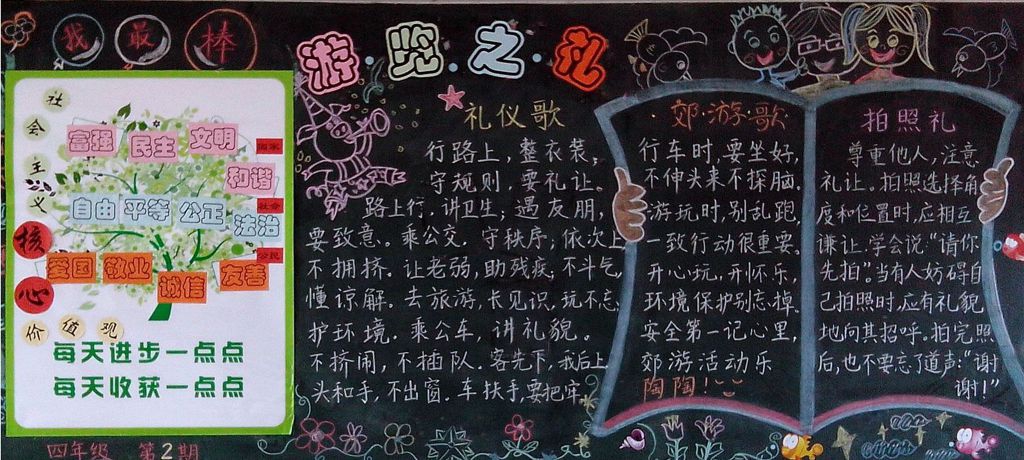 我最棒
社会主义核心价值观
富强 民主 文明
国家
和谐
自由 平等 公正 法治
社会
公民
爱国 敬业 诚信 友善
每天进步一点点
每天收获一点点
四年级 第2期
游·览·之·礼
礼仪歌
行路上,整衣装,
守规则,要礼让。
路上行,讲卫生;遇友朋,
要致意。乘公交,守秩序;依次上
不拥挤。让老弱,助残疾;不斗气,
懂谅解。去旅游,长见识,玩不忘
护环境。乘公车,讲礼貌。
不挤闹,不插队。客先下,我后上
头和手,不出窗.车扶手,要把牢
郊·游·歌
行车时,要坐好,
不伸头来不探脑.
游玩时,别乱跑,
一致行动很重要.
开心玩,开怀乐,
环境保护别忘掉.
安全第一记心里,
郊游活动乐
陶陶!
拍照礼
尊重他人,注意
礼让。拍照选择角
度和位置时,应相互
谦让.学会说:“请你
先拍”当有人妨碍自
己拍照时,应有礼貌
地向其招呼.拍完照
后,也不要忘了道声:“谢
谢!”